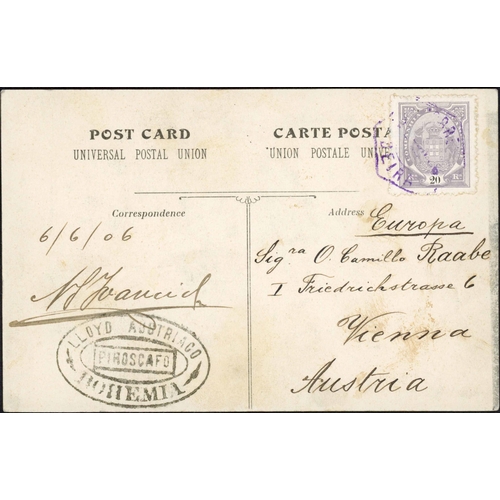 POST CARD
UNIVERSAL POSTAL UNION
CARTE POSTA
UNION POSTALE UNIVER
20
Correspondence
Address
6/6/06
Europa
Sig.ra O. Camillo Raabe
I Friedrichstrasse 6
Vienna
Austria
LLOYD AUSTRIACO
PIROSCAFO
BOHEMIA